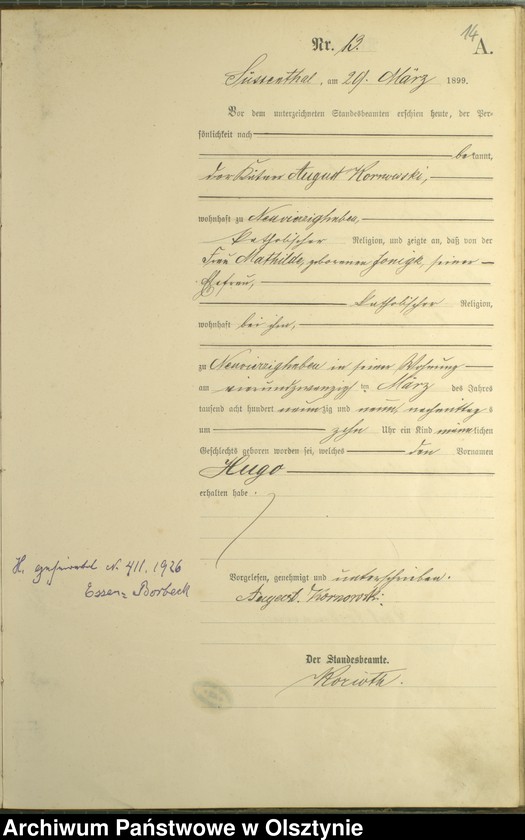 14
A.
Nr. 13.
Süssenthal, am 29. März 1899.
Vor dem unterzeichneten Standesbeamten erschien heute, der Per-
sönlichkeit nach
bekannt,
der August Kornowski,
wohnhaft zu Neuvierzighuben,
katholischer Religion, und zeigte an, daß von der
Frau Mathilde, geborenen Jonigk, seiner
Ehefrau,
katholischer Religion,
wohnhaft bei ihm,
zu Neuvierzighuben in seiner Wohnung
am vierundzwanzigten März des Jahres
tausend acht hundert neunzig und neun, nachmittags
um zehn Uhr ein Kind männlichen
Geschlechts geboren worden sei, welches den Vornamen
Hugo
erhalten habe.
H. geheiratet N. 411. 1926
Essen-Borbeck
Vorgelesen, genehmigt und unterschrieben.
August Kornowski.
Der Standesbeamte.
Korioth.
Archiwum Państwowe w Olsztynie